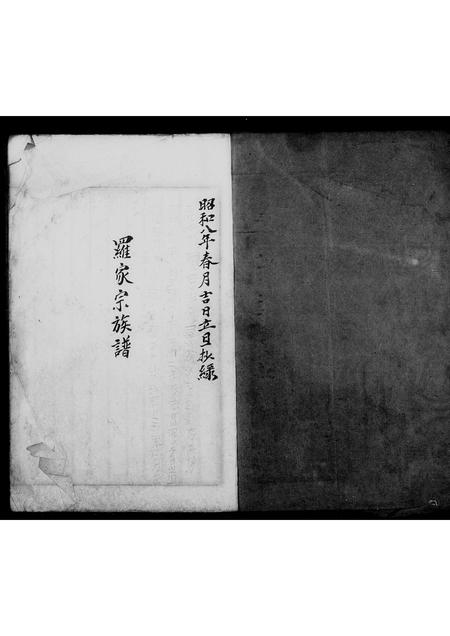 昭和八年春月吉日立旦抄錄
羅家宗族譜